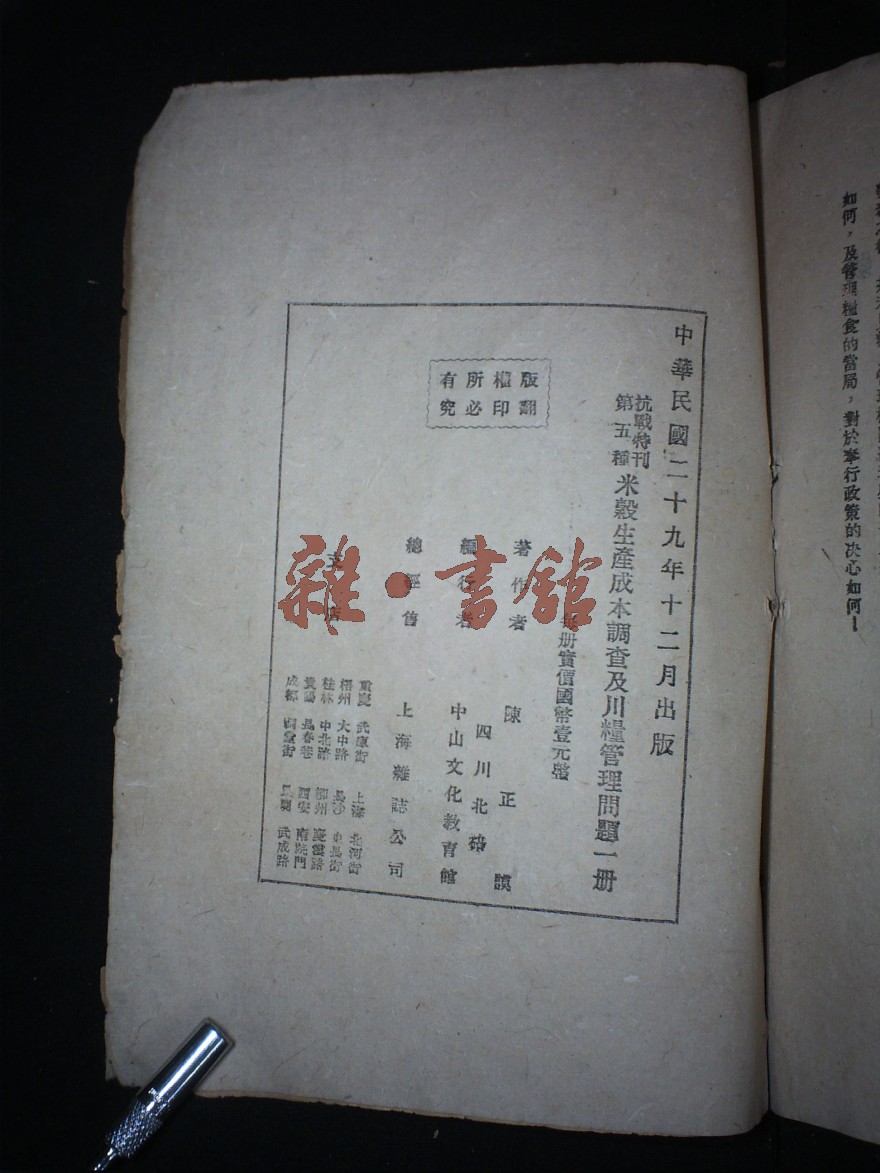 如何，及管理糧食的當局，對於奉行政策的决心如何！
中華民國二十九年十二月出版
抗戰特刊
第五種
米穀生產成本調查及川糧管理問題一册
每册實價國幣壹元
版權所有
翻印必究
著作者 陳正謨
四川北碚
編行者 中山文化教育館
總經售 上海雜誌公司
支店
重慶 武庫街 上海
梧州 大中路 長沙
桂林 中北路 柳州 慶雲路
貴陽 長春巷 西安 南院門
成都 武成路
雜·書館